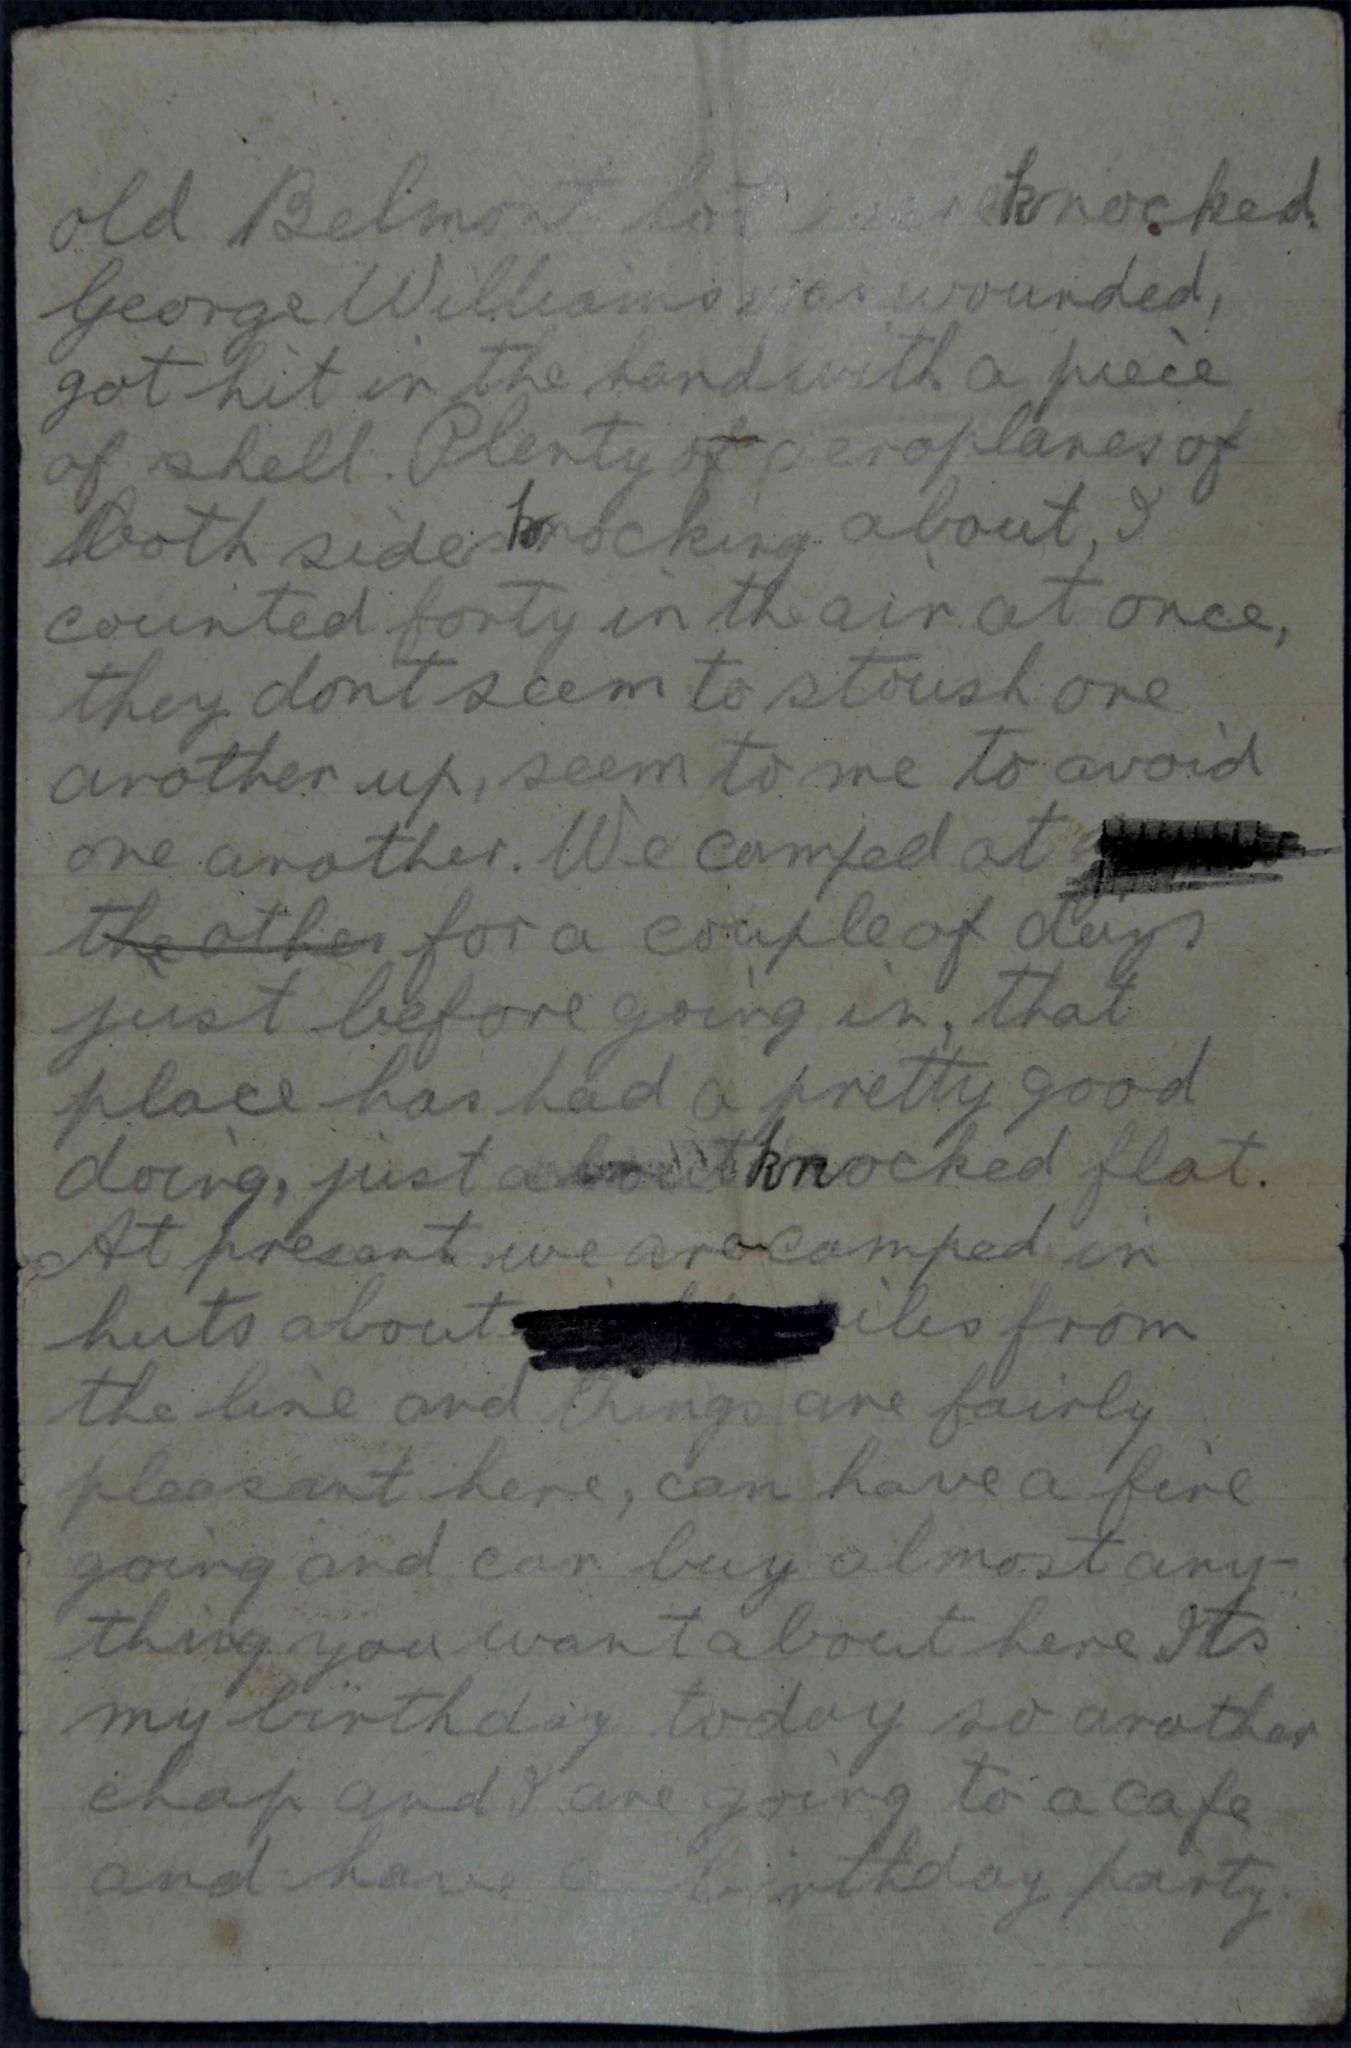 old Belmont lot were knocked.
George Williams was wounded,
got hit in the hand with a piece
of shell. Plenty of aeroplanes of
both sides knocking about, I
counted forty in the air at once,
they dont seem to stoush one
another up, seem to me to avoid
one another. We camped at
the other for a couple of days
just before going in, that
place has had a pretty good
doing, just about knocked flat.
At present we are camped in
huts about miles from
the line and things are fairly
pleasant here, can have a fire
going and can buy almost any-
thing you want about here Its
my birthday today so another
chap and I are going to a cafe
and have a birthday party.